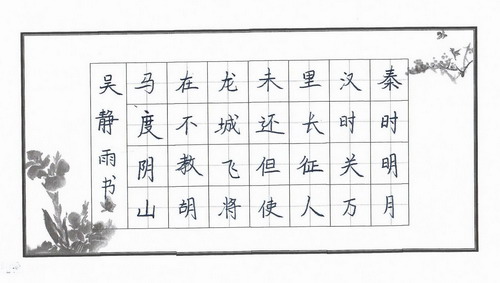 秦时明月
汉时关万
里长征人
未还但使
龙城飞将
在不教胡
马度阴山
吴静雨书